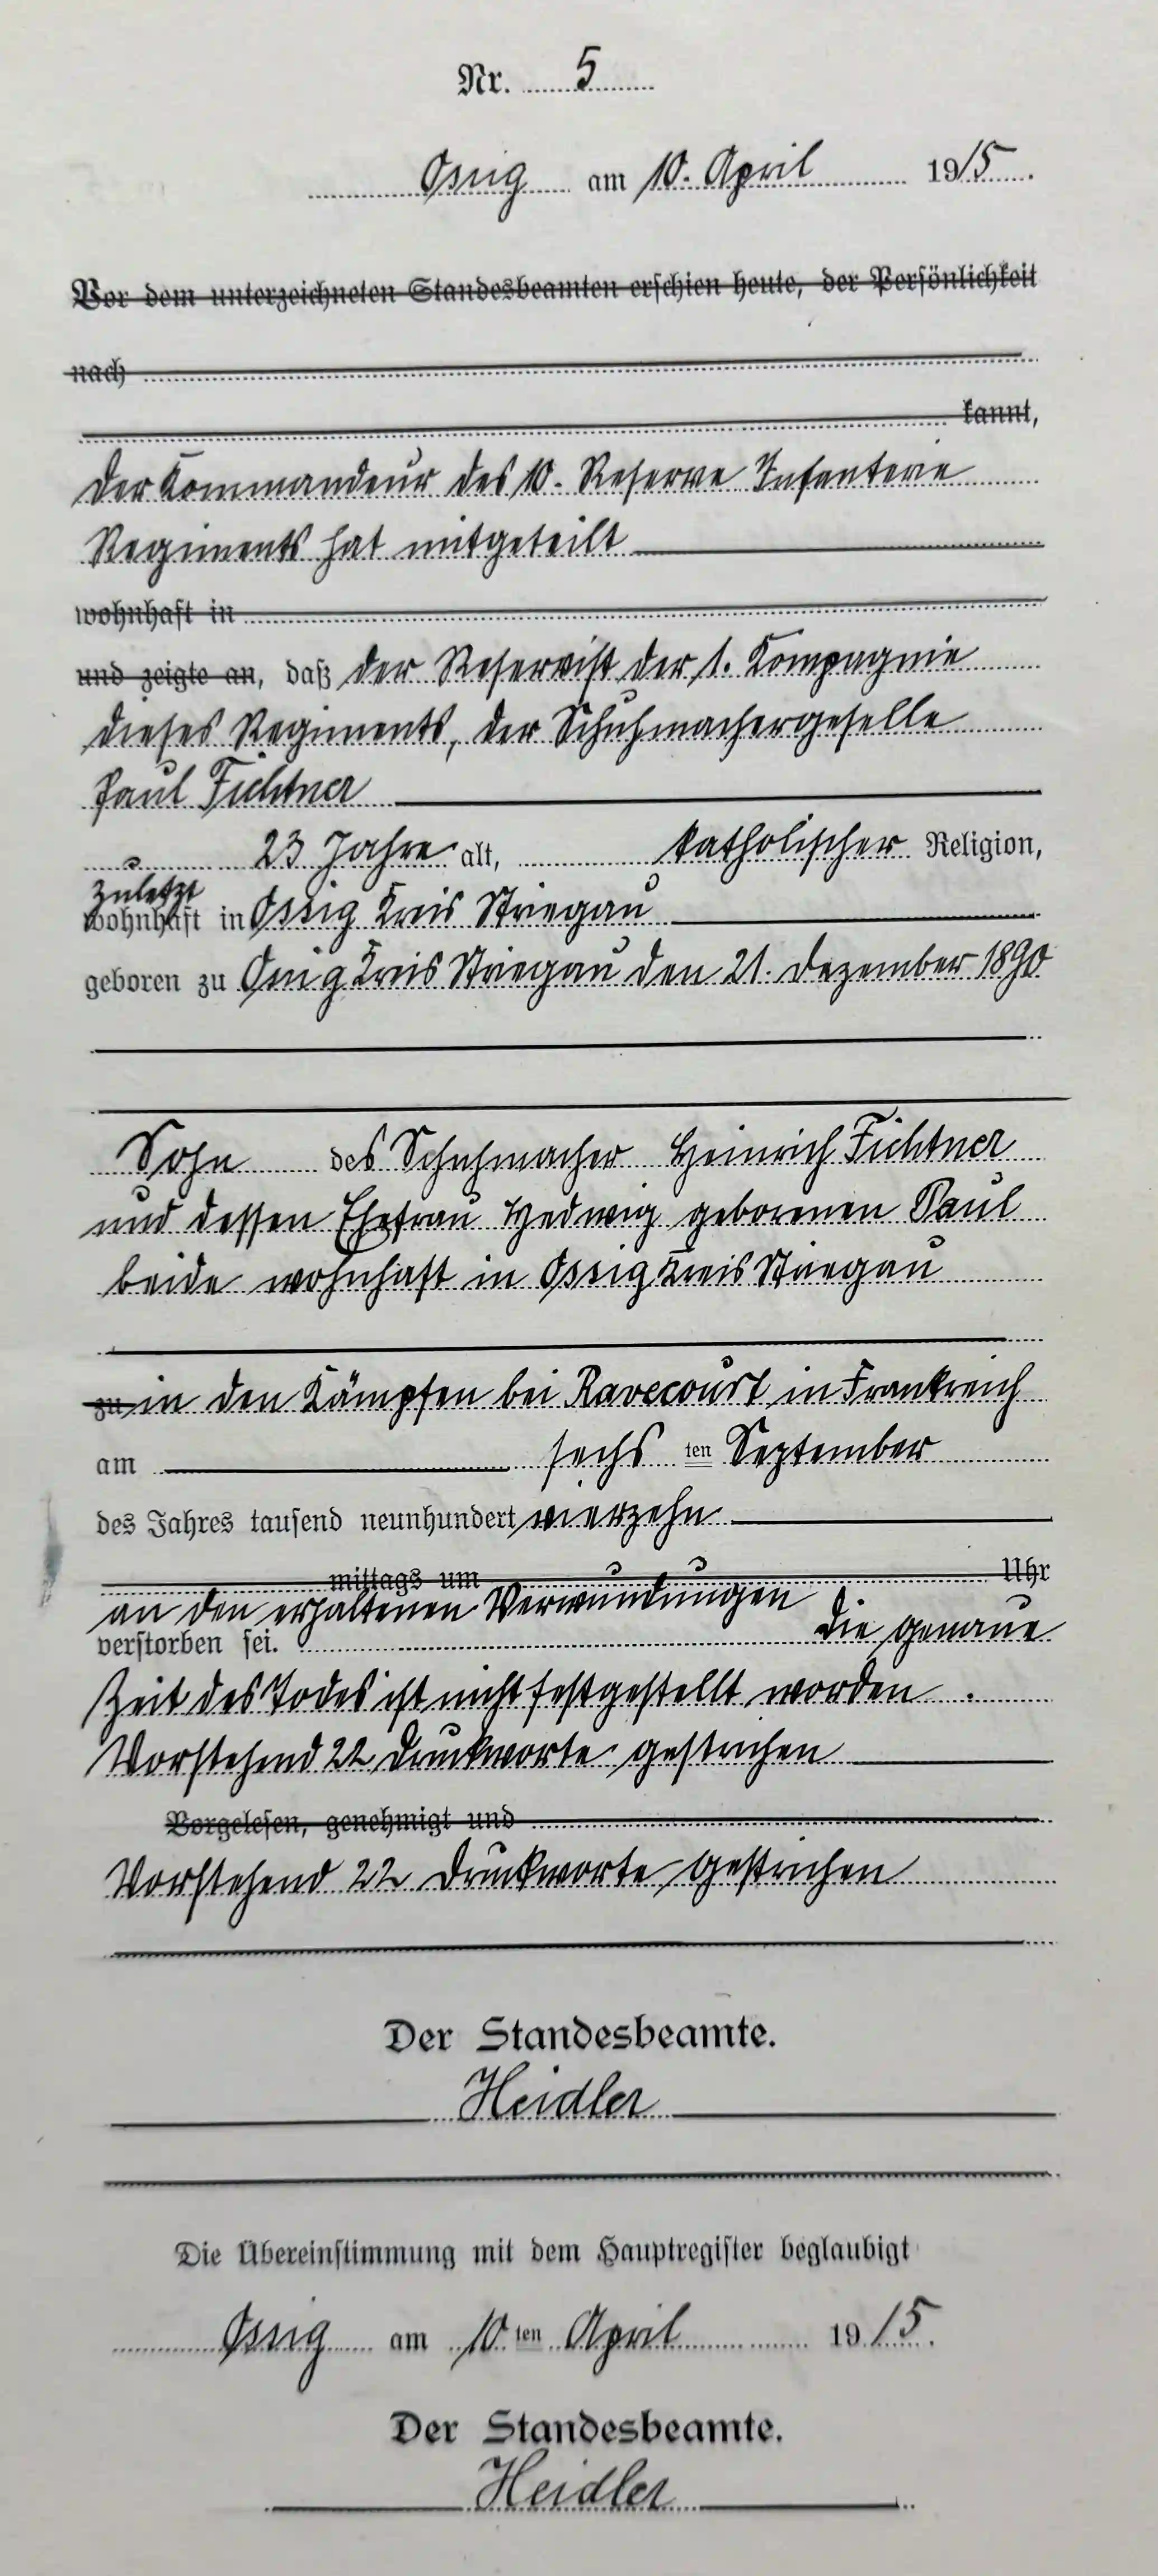 Nr. 5
Ossig am 10. April 1915.
Vor dem unterzeichneten Standesbeamten erschien heute, der Persönlichkeit
nach
kannt,
der Kommandeur des 10. Reserve Infanterie
Regiments hat mitgeteilt
wohnhaft in
und zeigte an, daß der Reservist der 1. Kompagnie
dieses Regiments, der Schuhmachergeselle
Paul Fichtner
23 Jahre alt, katholischer Religion,
zuletzt
wohnhaft in Ossig Kreis Striegau
geboren zu Ossig Kreis Striegau den 21. Dezember 1890
Sohn des Schuhmacher Heinrich Fichtner
und dessen Ehefrau Hedwig geborenen Paul
beide wohnhaft in Ossig Kreis Striegau
zu in den Kämpfen bei Ravecourt in Frankreich
am sechs ten September
des Jahres tausend neunhundert vierzehn
mittags um Uhr
an den erhaltenen Verwundungen
verstorben sei. Die genaue
Zeit des Todes ist nicht festgestellt worden.
Vorstehend 22 Druckworte gestrichen
Vorgelesen, genehmigt und
Vorstehend 22 Druckworte gestrichen
Der Standesbeamte.
Heidler
Die Übereinstimmung mit dem Hauptregister beglaubigt
Ossig am 10 ten April 1915.
Der Standesbeamte.
Heidler